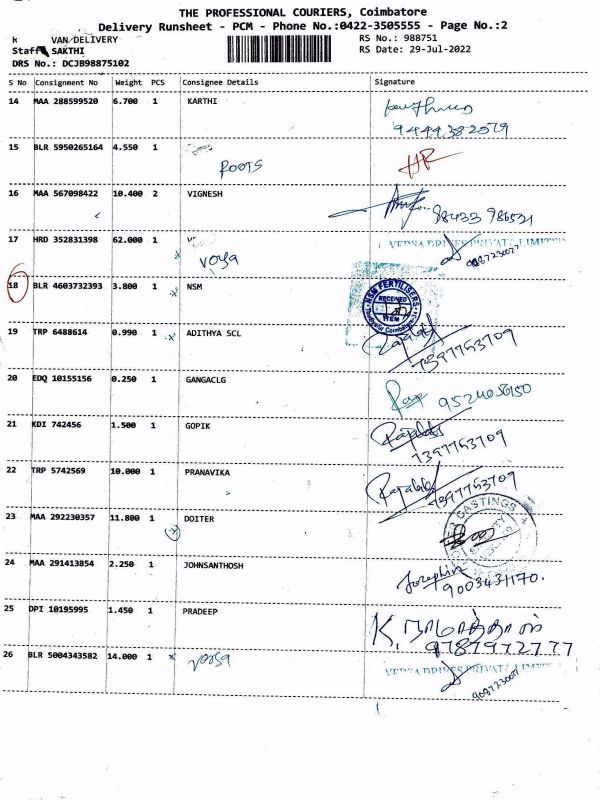 THE PROFESSIONAL COURIERS, Coimbatore
Delivery Runsheet - PCM - Phone No.:0422-3505555 - Page No.:2
VAN/DELIVERY
Staff SAKTHI
DRS No.: DCJB98875102
RS No.: 988751
RS Date: 29-Jul-2022
S No Consignment No Weight PCS Consignee Details Signature
14 MAA 288599520 6.700 1 KARTHI
15 BLR 5950265164 4.550 1 ROOTS HR
16 MAA 567098422 10.400 2 VIGNESH 98433 986531
17 HRD 352831398 62.000 1 VERSA DRIVES PRIVATE LIMITED
18 BLR 4603732393 3.800 1 NSM NSM FERTILISERS RECEIVED ITEM
19 TRP 6488614 0.990 1 ADITHYA SCL 7397753709
20 EDQ 10155156 0.250 1 GANGACLG
21 KDI 742456 1.500 1 GOPIK 7397753709
22 TRP 5742569 10.000 1 PRANAVIKA 7397753709
23 MAA 292230357 11.800 1 DOITER CASTINGS
24 MAA 291413854 2.250 1 JOHNSANTHOSH Josephin 9003431170.
25 DPI 10195995 1.450 1 PRADEEP K. 9789972777
26 BLR 5004343582 14.000 1 VERSA DRIVES PRIVATE LIMITED